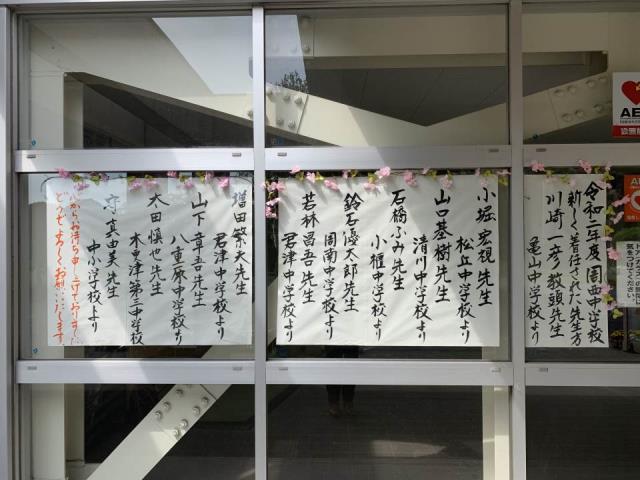 令和二年度 周西中学校
新しく着任された先生方
川崎一彦教頭先生
亀山中学校より
小堀宏視先生
松丘中学校より
山口基樹先生
清川中学校より
石橋ふみ先生
小櫃中学校より
鈴石優太郎先生
周南中学校より
若林昌吾先生
君津中学校より
増田繁夫先生
君津中学校より
山下章吾先生
八重原中学校より
太田慎也先生
木更津第二中学校
真由美先生
中小学校より
からお待ち申し上げておりま
どうぞよろしくお願 します
AED